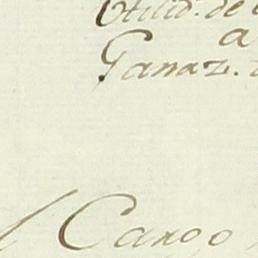 Utilid. de
a
Ganaz.
Cargo